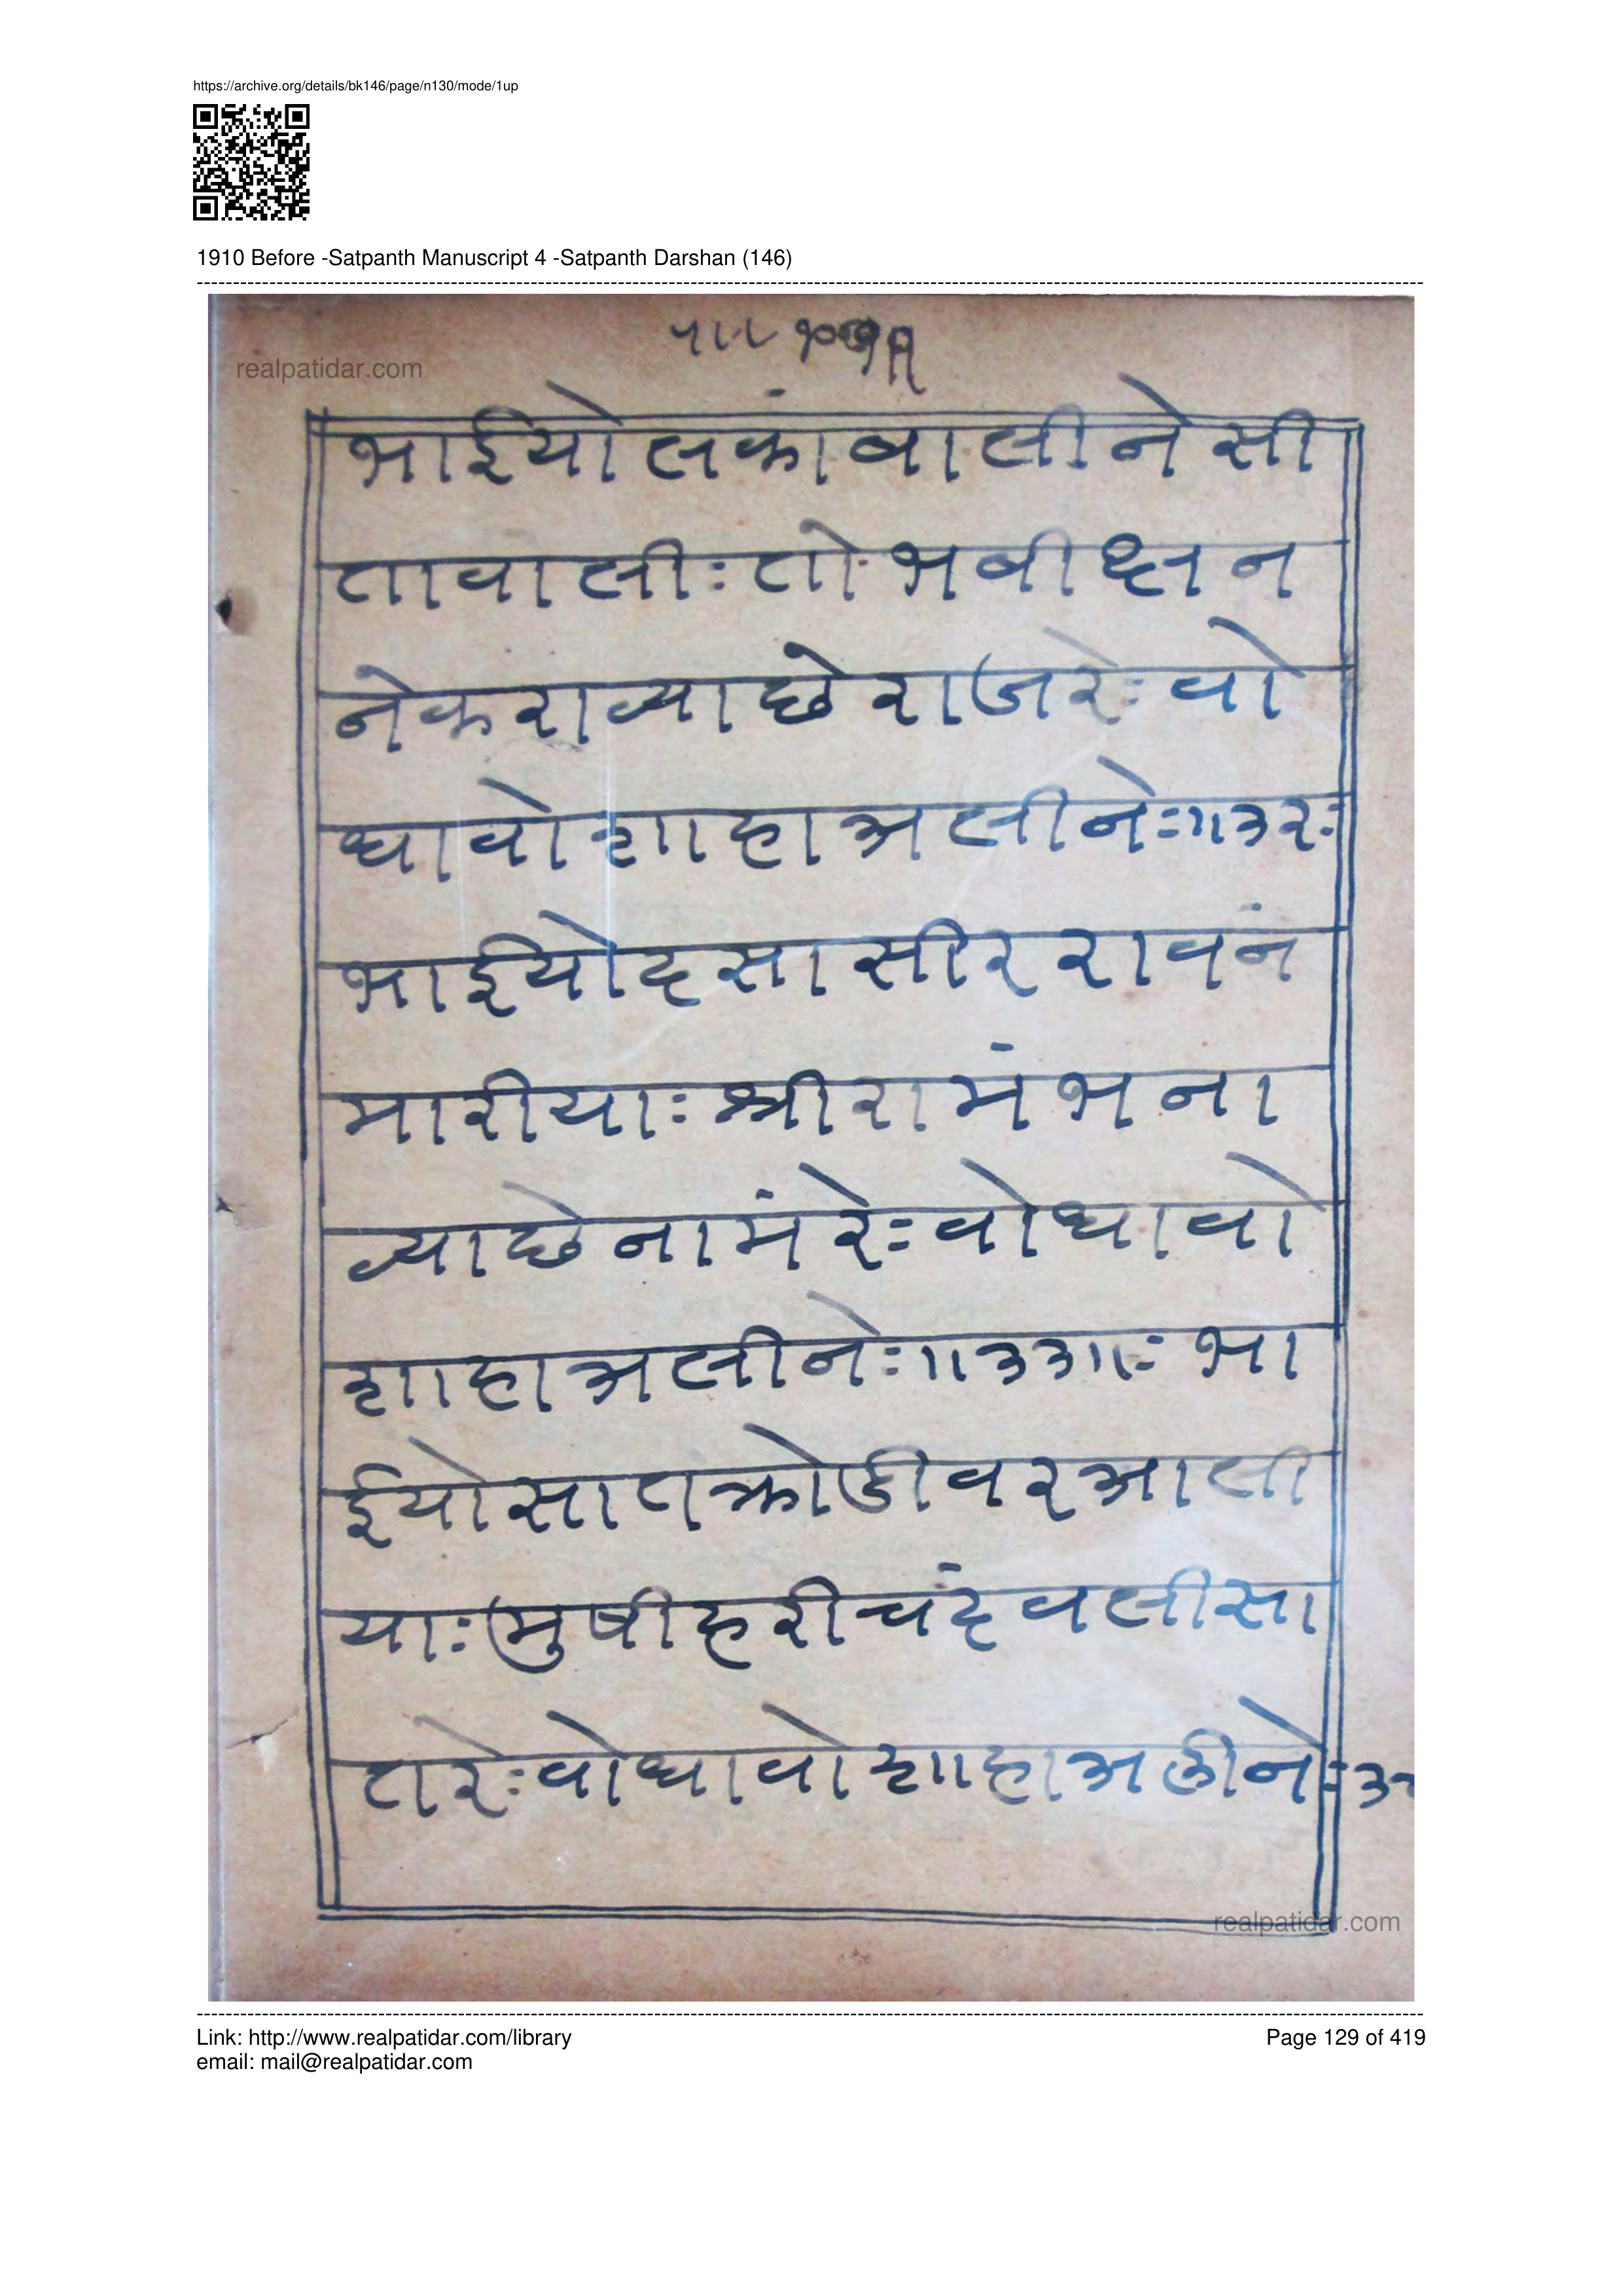 https://archive.org/details/bk146/page/n130/mode/1up
1910 Before -Satpanth Manuscript 4 -Satpanth Darshan (146)
realpatidar.com
भाईयो लकां वाली ने सी
ता वालीः तोः भबी क्ष्न
ने कराव्या छे राजरेः वो
धावो शाहा अली नेः ॥३२ः
भाईयो दसा सीर रावनं
मारीयाः श्री रामं भना
व्या छे नामं रेः वो धावो
शाहा अली नेः ॥३३॥ः भा
ईयो सात क्रोडी वर आली
याः मुषी हरीचंद वली सा
तरेः वो धावो शाहा अली नेः
realpatidar.com
Link: http://www.realpatidar.com/library
Page 129 of 419
email: mail@realpatidar.com